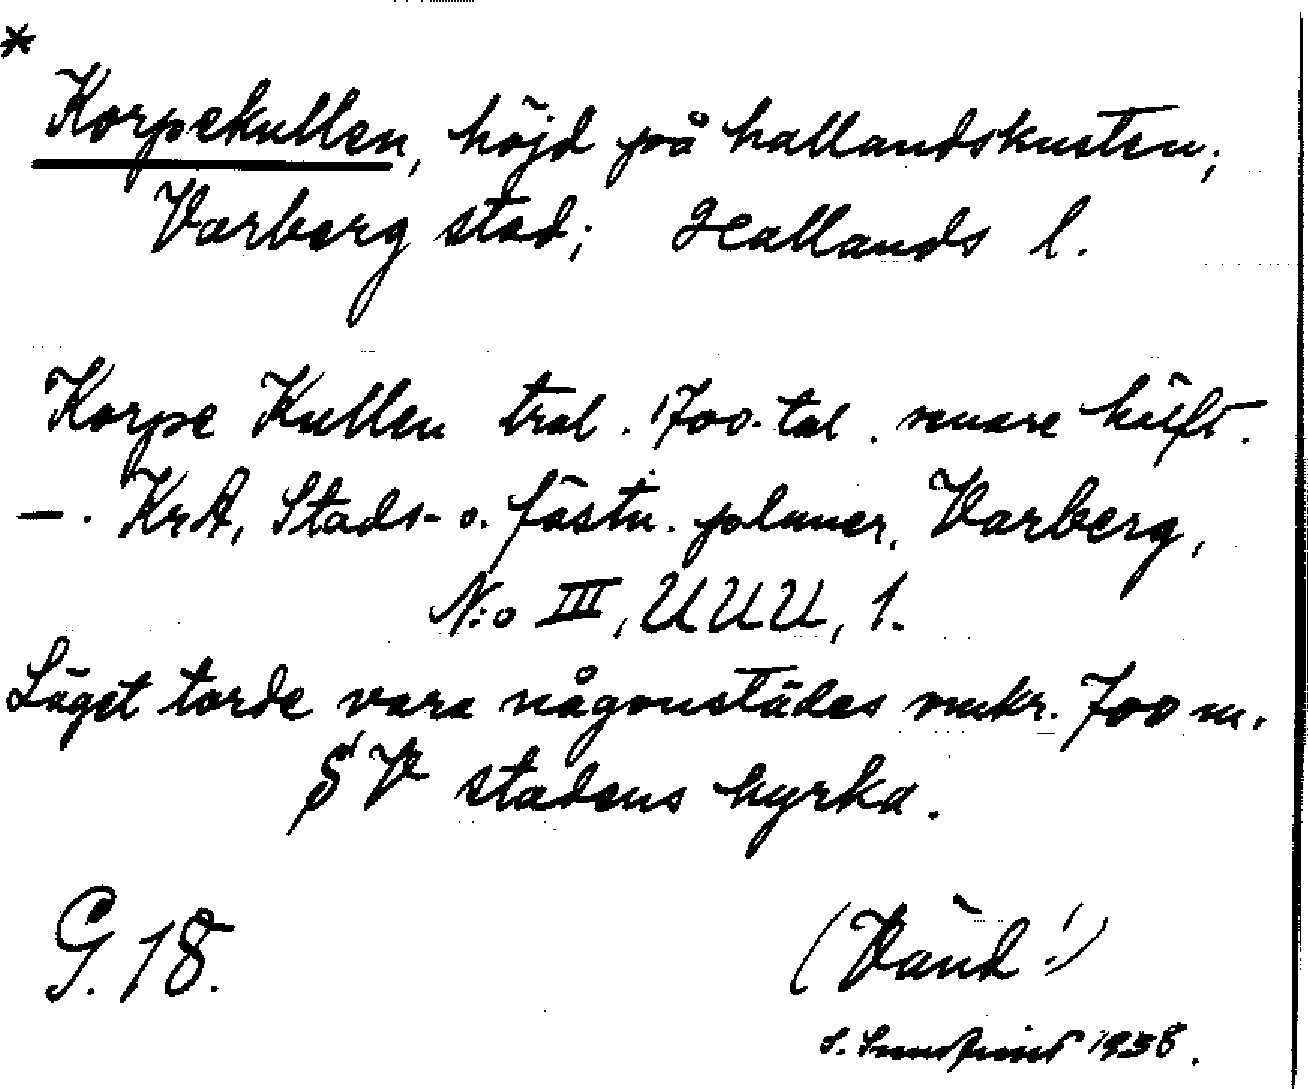 *
Korpekullen, höjd på hallandskusten;
Varberg stad; Hallands l.
Korpe Kullen trol. 1700-tal. senare hälft.
—. KrA, Stads- o. fästn. planer, Varberg,
N:o III, UUU, 1.
Läget torde vara någonstädes omkr. 700 m.
SV stadens kyrka.
G. 18.
(Vänd!)
S. 1938.